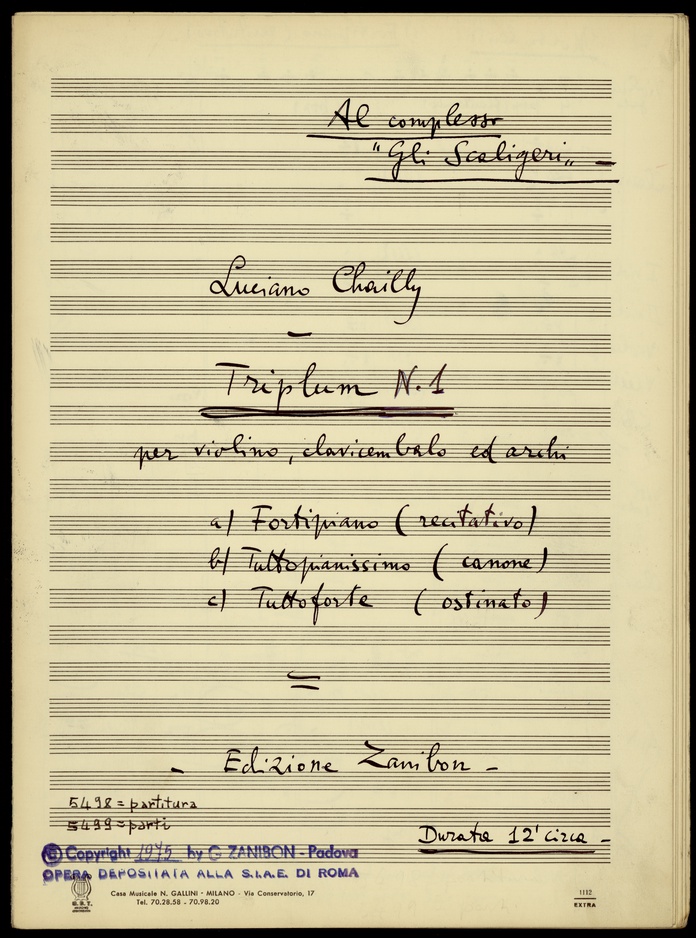 Al complesso
"Gli Scaligeri" -
Luciano Chailly
Triplum N. 1
per violino, clavicembalo ed archi
a) Fortipiano (recitativo)
b) Tuttopianissimo (canone)
c) Tuttoforte (ostinato)
- Edizione Zanibon -
5498 = partitura
5499 = parti
Durata 12' circa -
© Copyright 1975 by G. ZANIBON - Padova
OPERA DEPOSITATA ALLA S.I.A.E. DI ROMA
Casa Musicale N. GALLINI - MILANO - Via Conservatorio, 17
Tel. 70.28.58 - 70.98.20
1112
EXTRA